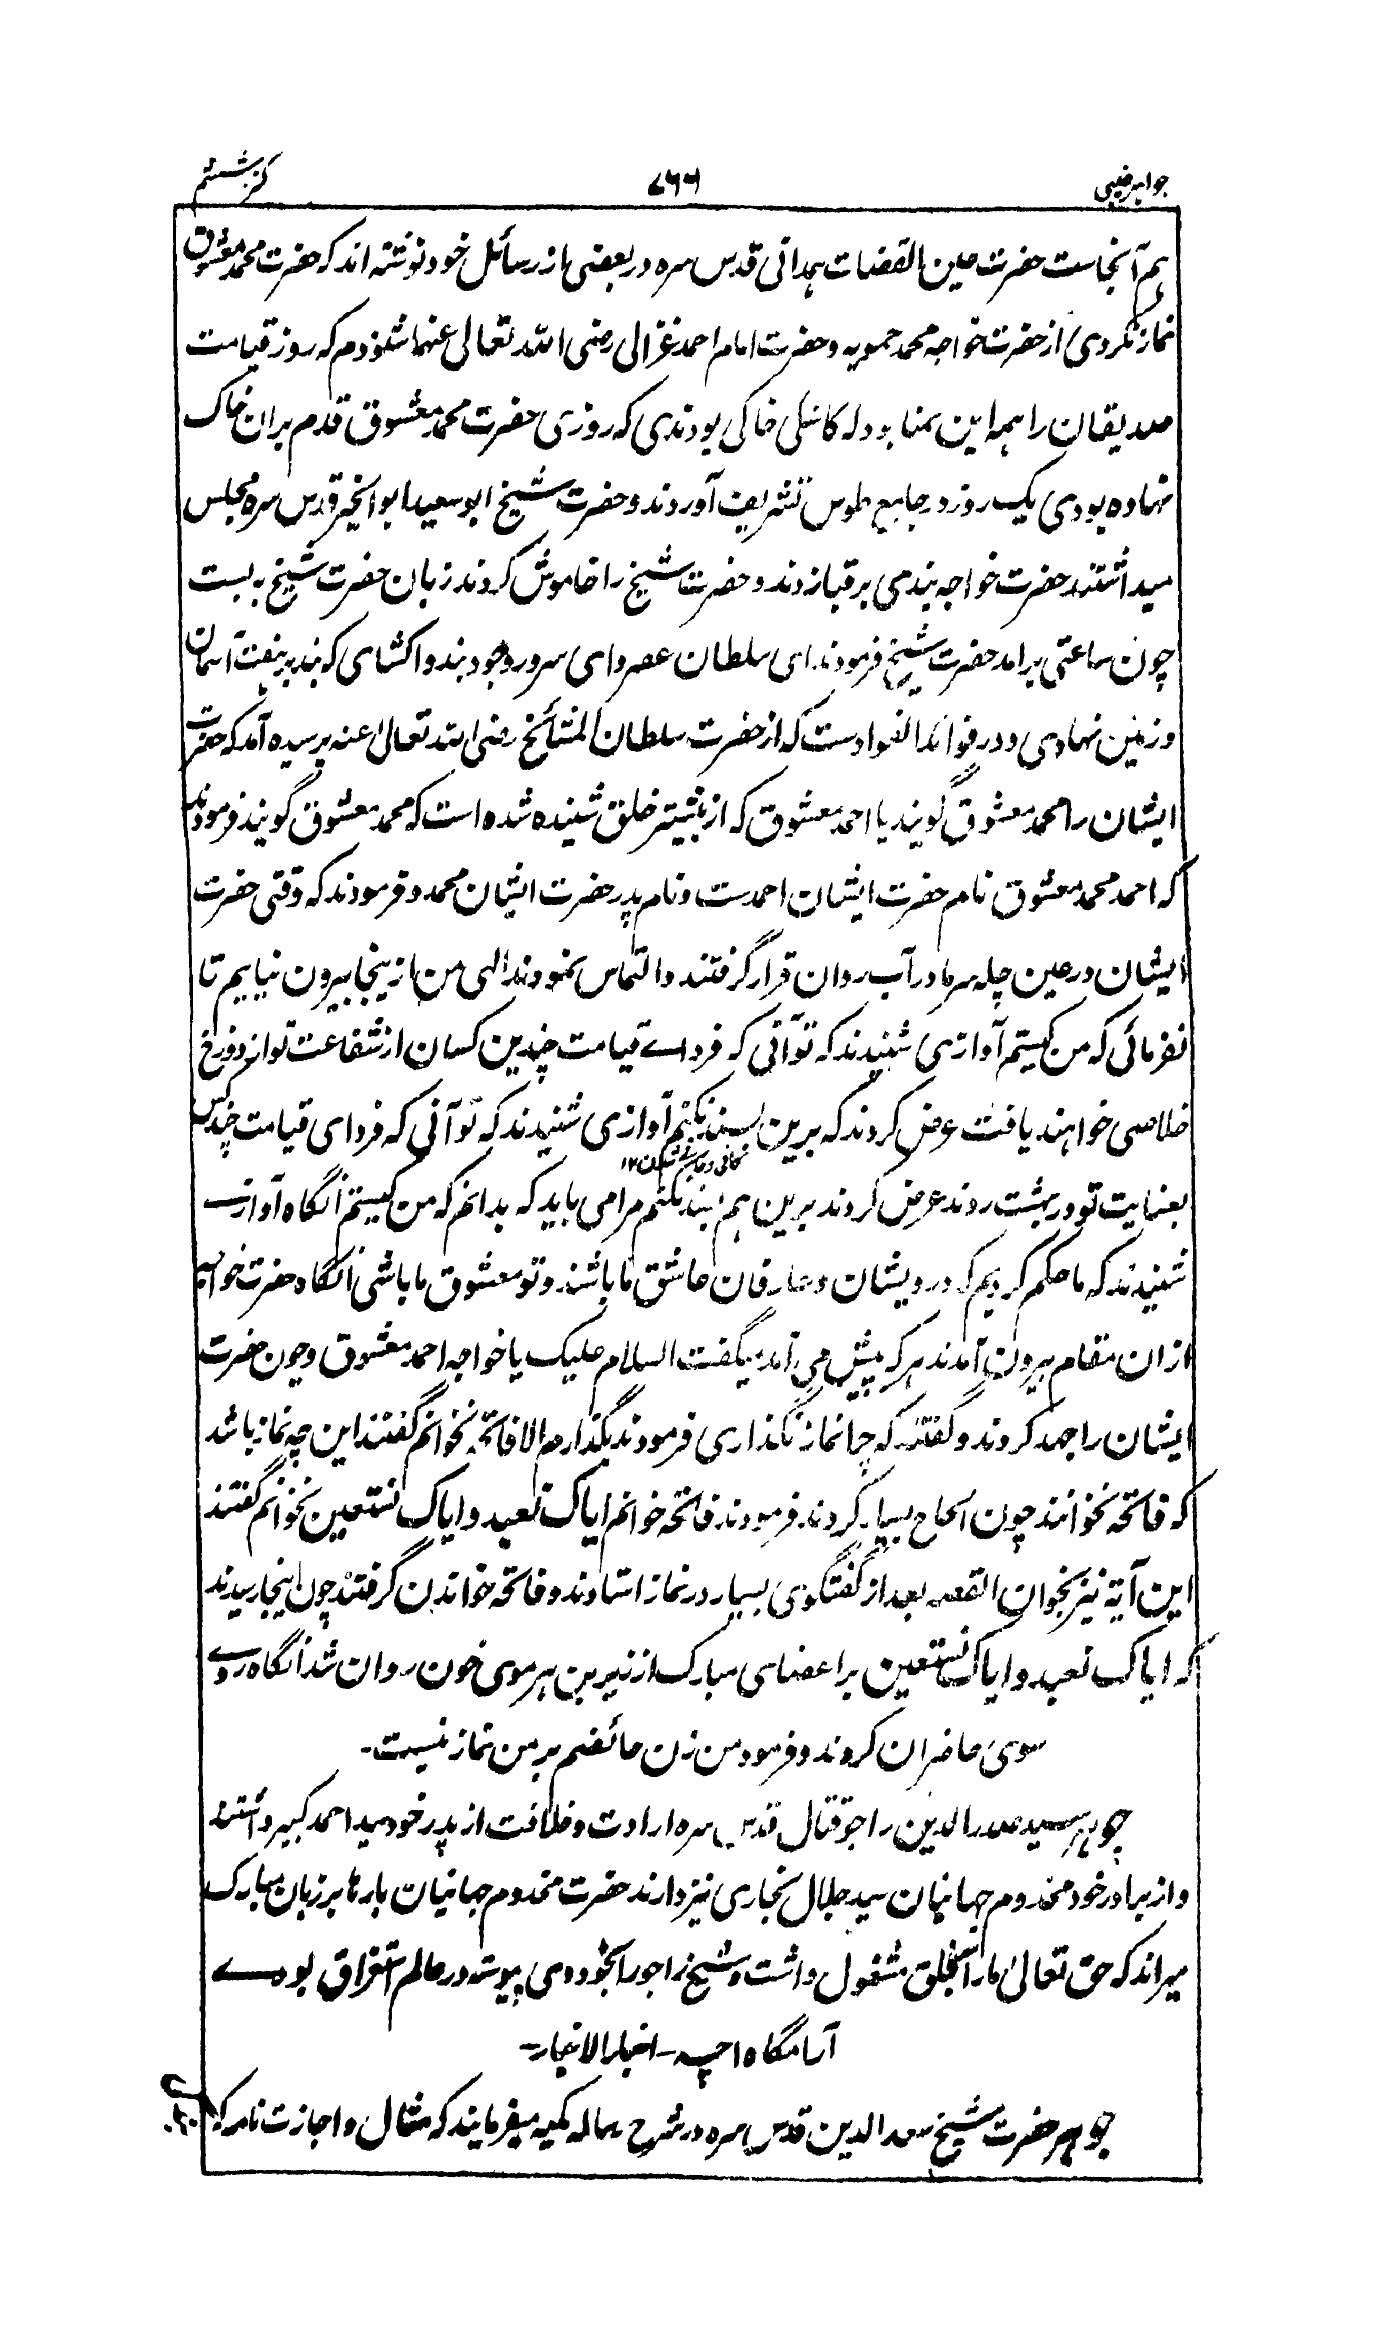 جواهر غیبی ۷۶۶ کنز ششم
هم آنجاست حضرت عین القضات همدانی قدس سره در بعضی از رسائل خود نوشته اند که حضرت محمد معشوق
نماز نکردی از حضرت خواجه محمد حمویه و حضرت امام احمد غزالی رضی الله تعالی عنهما شنودم که روز قیامت
صدیقان را همه این تمنا بود که کاشکی خاکی بودندی که روزی حضرت محمد معشوق قدم بران خاک
نهاده بودی یک روز در جامع طوس تشریف آوردند و حضرت شیخ ابو سعید ابو الخیر قدس سره مجلس
میداشتند حضرت خواجه بندی بر قبا زدند و حضرت شیخ را خاموش کردند زبان حضرت شیخ به بست
چون ساعتی برامد حضرت شیخ فرمودند ای سلطان عصر و ای سرور وجود بند واکشای که بند بر هفت آسمان
و زمین نهادی و در فوائد الفوادست که از حضرت سلطان المشائخ رضی الله تعالی عنه پرسیده آمد که حضرت
ایشان را محمد معشوق گویند یا احمد معشوق که از بیشتر خلق شنیده شده است که محمد معشوق گویند فرمودند
که احمد محمد معشوق نام حضرت ایشان احمدست و نام پدر حضرت ایشان محمد و فرمودند که وقتی حضرت
ایشان در عین چله سرما در آب روان قرار گرفتند و التماس نمودند الهی من ازینجا بیرون نیایم تا
نفرمائی که من کیستم آوازی شنیدند که تو آنی که فردای قیامت چندین کسان از شفاعت تو از دوزخ
خلاصی خواهند یافت عرض کردند که برین بسند نکنم آوازی شنیدند که تو آنی که فردای قیامت چند کس
بعنایت تو در بهشت روند عرض کردند برین هم بسند نکنم مرا می باید که بدانم که من کیستم آنگاه آوازے
شنیدند که ما حکم کردیم که درویشان و عارفان عاشق ما باشند و تو معشوق ما باشی آنگاه حضرت خواجه
ازان مقام بیرون آمدند هر که پیش می آمد میگفت السلام علیک یا خواجه احمد معشوق و چون حضرت
ایشان را جهد کردند و گفتند که چرا نماز نگذاری فرمودند بگذارم الا فاتحه نخوانم گفتند این چه نماز باشد
که فاتحه نخوانند چون الحاح بسیار کردند فرمودند فاتحه خوانم ایاک نعبد و ایاک نستعین نخوانم گفتند
این آیة نیز بخوان القصه بعد از گفتگوی بسیار در نماز استادند و فاتحه خواندن گرفتند چون اینجا رسیدند
که ایاک نعبد و ایاک نستعین بر اعضای مبارک از زیر بن هر موی خون روان شد آنگاه روے
سوی حاضران کردند و فرمود من زن حائضم بر من نماز نیست-
جوهر سید صدر الدین راجو قتال قدس سره ارادت و خلافت از پدر خود سید احمد کبیر داشتند
و از برادر خود مخدوم جهانیان سید جلال بخاری نیز دارند حضرت مخدوم جهانیان بارها بر زبان مبارک
میراند که حق تعالی مارا بخلق مشغول داشت و شیخ راجو را بخود وی پیوسته در عالم استغراق بودے
آرامگاه اچه - اخبار الاخیار-
جوهر حضرت شیخ سعد الدین قدس سره در شرح رساله مکیه میفرمایند که مثال و اجازت نامه که